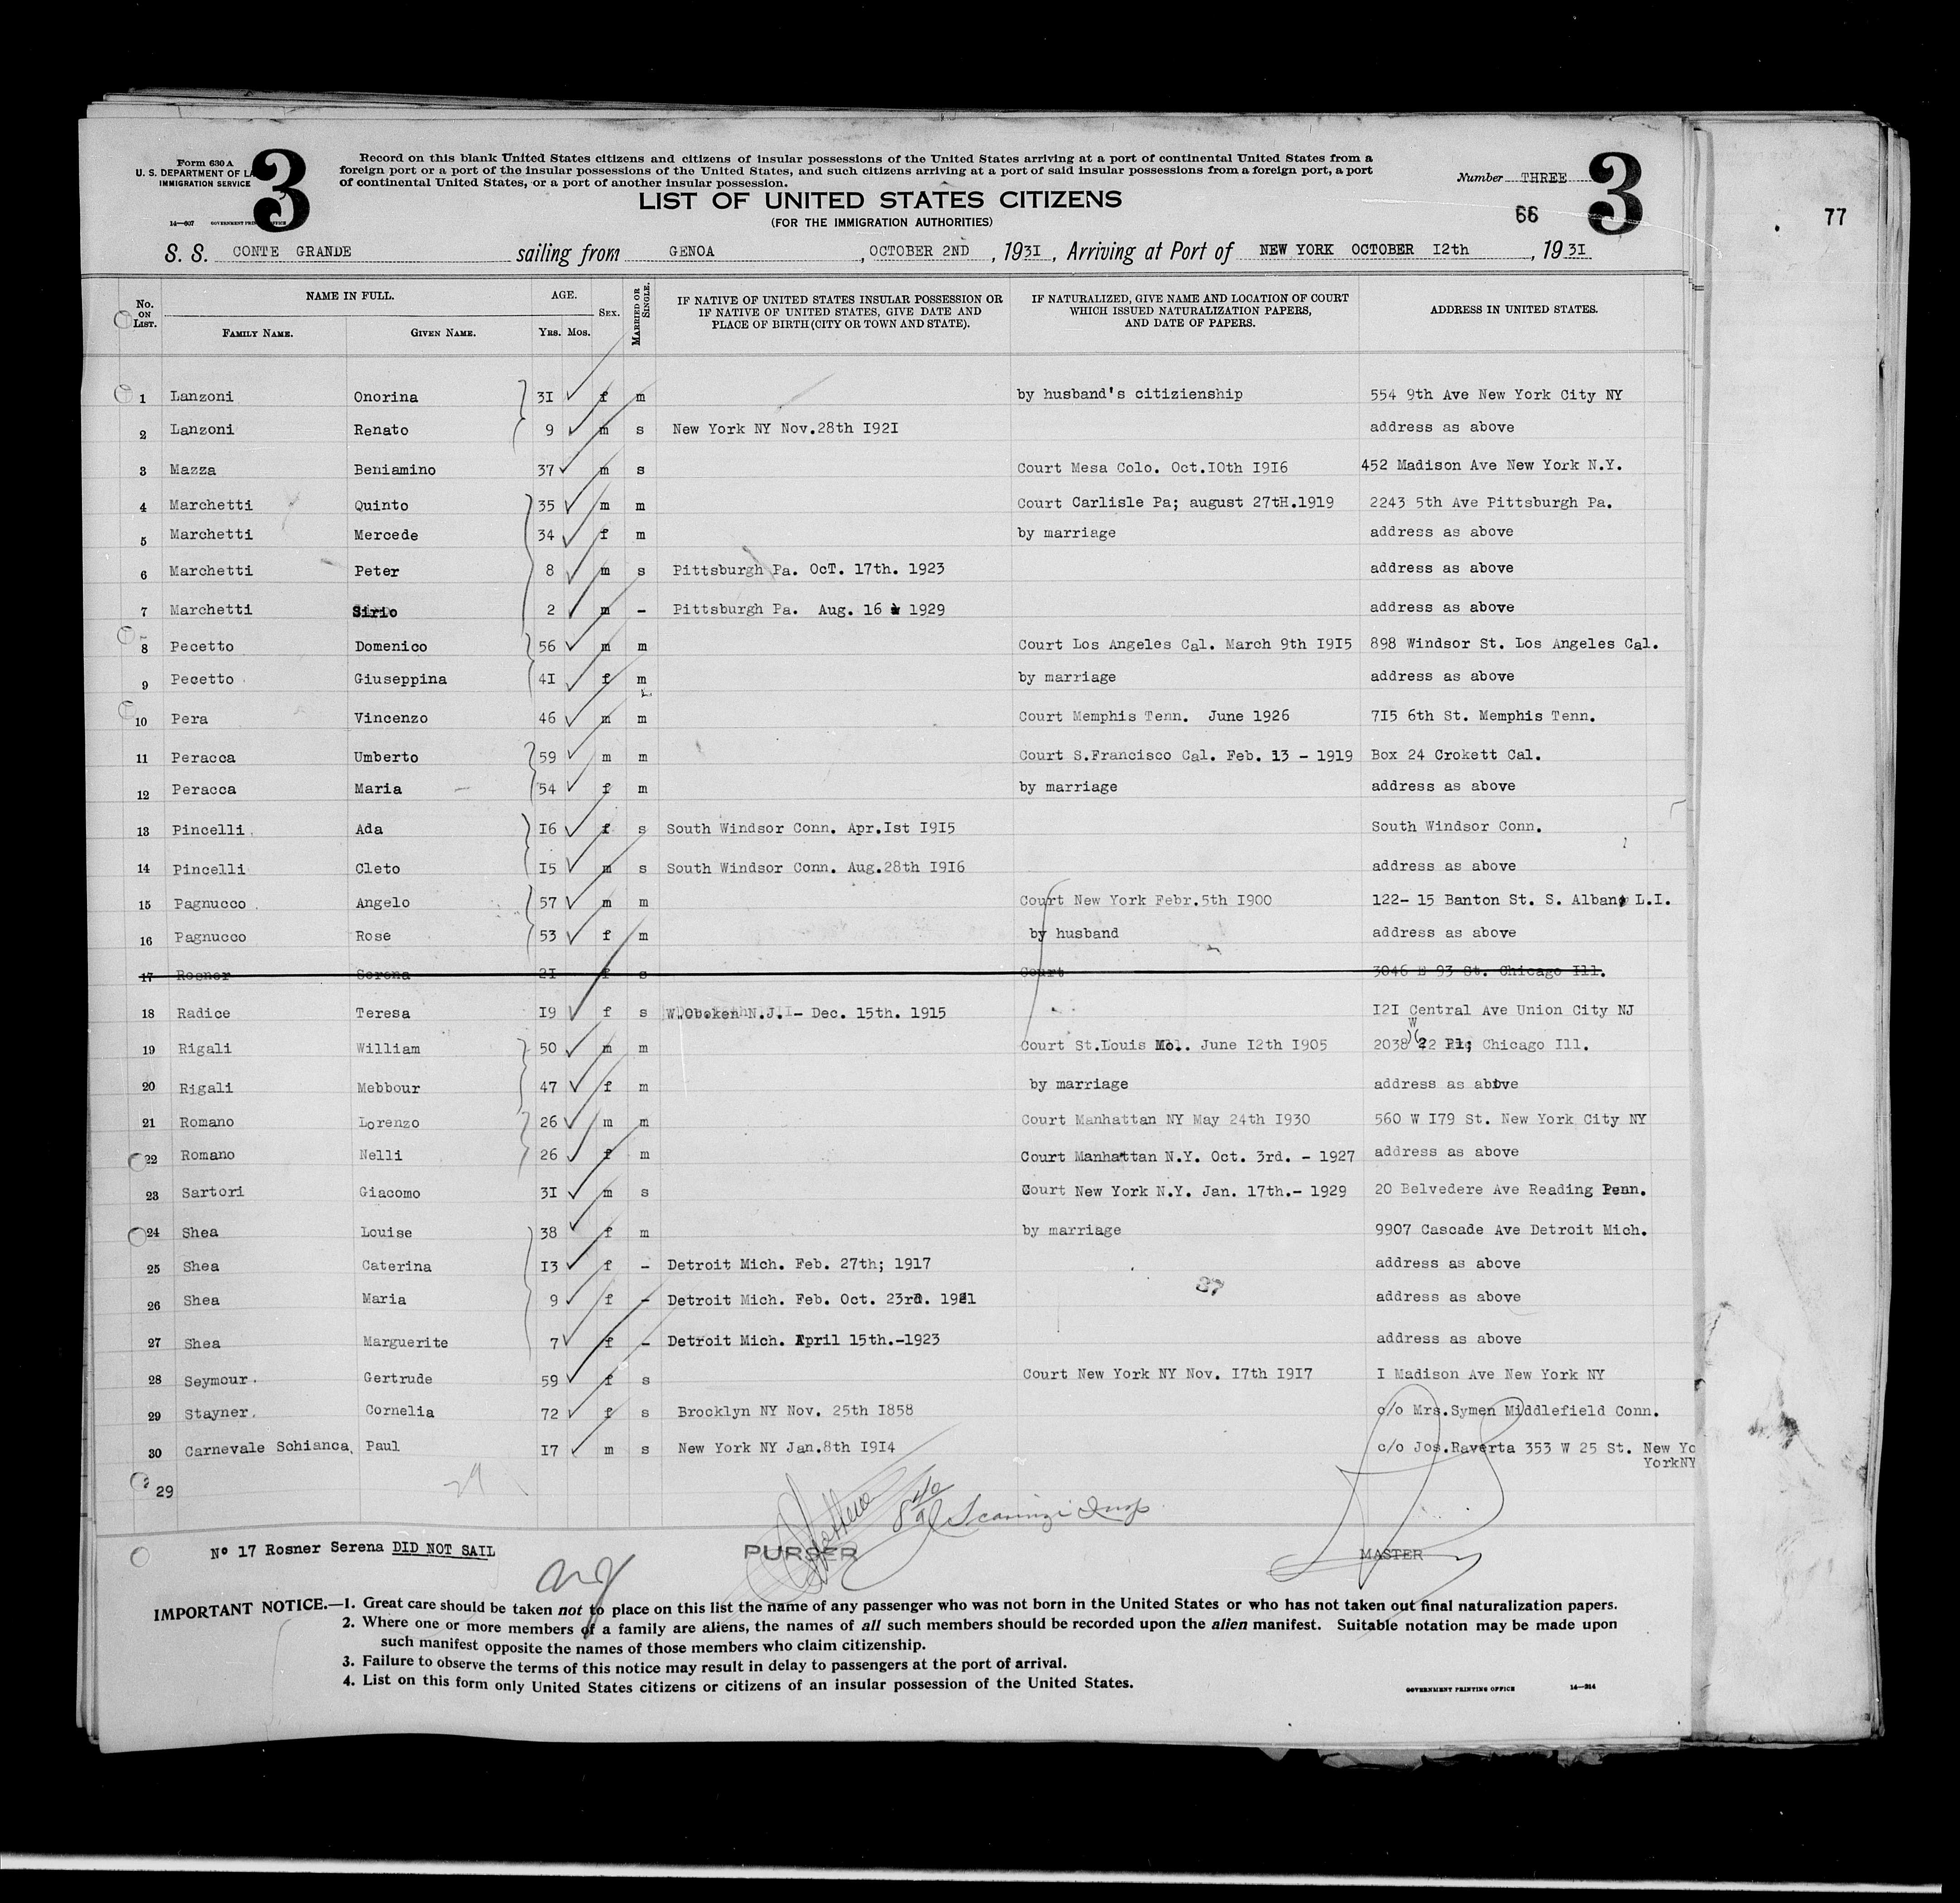 Form 630 A
U. S. DEPARTMENT OF LA
IMMIGRATION SERVICE
14—607 GOVERNMENT PRINTING OFFICE
3
Record on this blank United States citizens and citizens of insular possessions of the United States arriving at a port of continental United States from a
foreign port or a port of the insular possessions of the United States, and such citizens arriving at a port of said insular possessions from a foreign port, a port
of continental United States, or a port of another insular possession.
LIST OF UNITED STATES CITIZENS
(FOR THE IMMIGRATION AUTHORITIES)
Number THREE
3
66
77
S. S. CONTE GRANDE sailing from GENOA , OCTOBER 2ND , 1931 , Arriving at Port of NEW YORK OCTOBER I2th , 1931
No. ON LIST. NAME IN FULL. FAMILY NAME. GIVEN NAME. AGE. YRS. MOS. SEX. MARRIED OR SINGLE. IF NATIVE OF UNITED STATES INSULAR POSSESSION OR IF NATIVE OF UNITED STATES, GIVE DATE AND PLACE OF BIRTH (CITY OR TOWN AND STATE). IF NATURALIZED, GIVE NAME AND LOCATION OF COURT WHICH ISSUED NATURALIZATION PAPERS, AND DATE OF PAPERS. ADDRESS IN UNITED STATES.
1 Lanzoni Onorina 3I f m by husband's citizienship 554 9th Ave New York City NY
2 Lanzoni Renato 9 m s New York NY Nov.28th I92I address as above
3 Mazza Beniamino 37 m s Court Mesa Colo. Oct.IOth I9I6 452 Madison Ave New York N.Y.
4 Marchetti Quinto 35 m m Court Carlisle Pa; august 27tH.1919 2243 5th Ave Pittsburgh Pa.
5 Marchetti Mercede 34 f m by marriage address as above
6 Marchetti Peter 8 m s Pittsburgh Pa. OcT. 17th. 1923 address as above
7 Marchetti Sirio 2 m - Pittsburgh Pa. Aug. 16 1929 address as above
8 Pecetto Domenico 56 m m Court Los Angeles Cal. March 9th I9I5 898 Windsor St. Los Angeles Cal.
9 Pecetto Giuseppina 4I f m by marriage address as above
10 Pera Vincenzo 46 m m Court Memphis Tenn. June 1926 7I5 6th St. Memphis Tenn.
11 Peracca Umberto 59 m m Court S.Francisco Cal. Feb. 13 - 1919 Box 24 Crokett Cal.
12 Peracca Maria 54 f m by marriage address as above
13 Pincelli Ada I6 f s South Windsor Conn. Apr.Ist I9I5 South Windsor Conn.
14 Pincelli Cleto I5 m s South Windsor Conn. Aug.28th I9I6 address as above
15 Pagnucco Angelo 57 m m Court New York Febr.5th I900 122- 15 Banton St. S. Alban L.I.
16 Pagnucco Rose 53 f m by husband address as above
17 Rosner Serena 2I f s Court 3046 E 93 St. Chicago Ill.
18 Radice Teresa I9 f s W.Oboken N.J. - Dec. 15th. 1915 I2I Central Ave Union City NJ
19 Rigali William 50 m m Court St.Louis Mo. June I2th I905 2038 W 22 Pl; Chicago Ill.
20 Rigali Mebbour 47 f m by marriage address as above
21 Romano Lorenzo 26 m m Court Manhattan NY May 24th I930 560 W I79 St. New York City NY
22 Romano Nelli 26 f m Court Manhattan N.Y. Oct. 3rd. - 1927 address as above
23 Sartori Giacomo 3I m s Court New York N.Y. Jan. 17th.- 1929 20 Belvedere Ave Reading Penn.
24 Shea Louise 38 f m by marriage 9907 Cascade Ave Detroit Mich.
25 Shea Caterina I3 f - Detroit Mich. Feb. 27th; 1917 address as above
26 Shea Maria 9 f - Detroit Mich. Feb. Oct. 23rd. 1921 address as above
37
27 Shea Marguerite 7 f - Detroit Mich. April 15th.-1923 address as above
28 Seymour. Gertrude 59 f s Court New York NY Nov. I7th I9I7 I Madison Ave New York NY
29 Stayner. Cornelia 72 f s Brooklyn NY Nov. 25th I858 c/o Mrs.Symen Middlefield Conn.
30 Carnevale Schianca, Paul I7 m s New York NY Jan.8th I9I4 c/o Jos.Raverta 353 W 25 St. New Yo
YorkNY
29
29
No 17 Rosner Serena DID NOT SAIL
PURSER
MASTER
IMPORTANT NOTICE.—1. Great care should be taken not to place on this list the name of any passenger who was not born in the United States or who has not taken out final naturalization papers.
2. Where one or more members of a family are aliens, the names of all such members should be recorded upon the alien manifest. Suitable notation may be made upon
such manifest opposite the names of those members who claim citizenship.
3. Failure to observe the terms of this notice may result in delay to passengers at the port of arrival.
4. List on this form only United States citizens or citizens of an insular possession of the United States.
GOVERNMENT PRINTING OFFICE 14—314